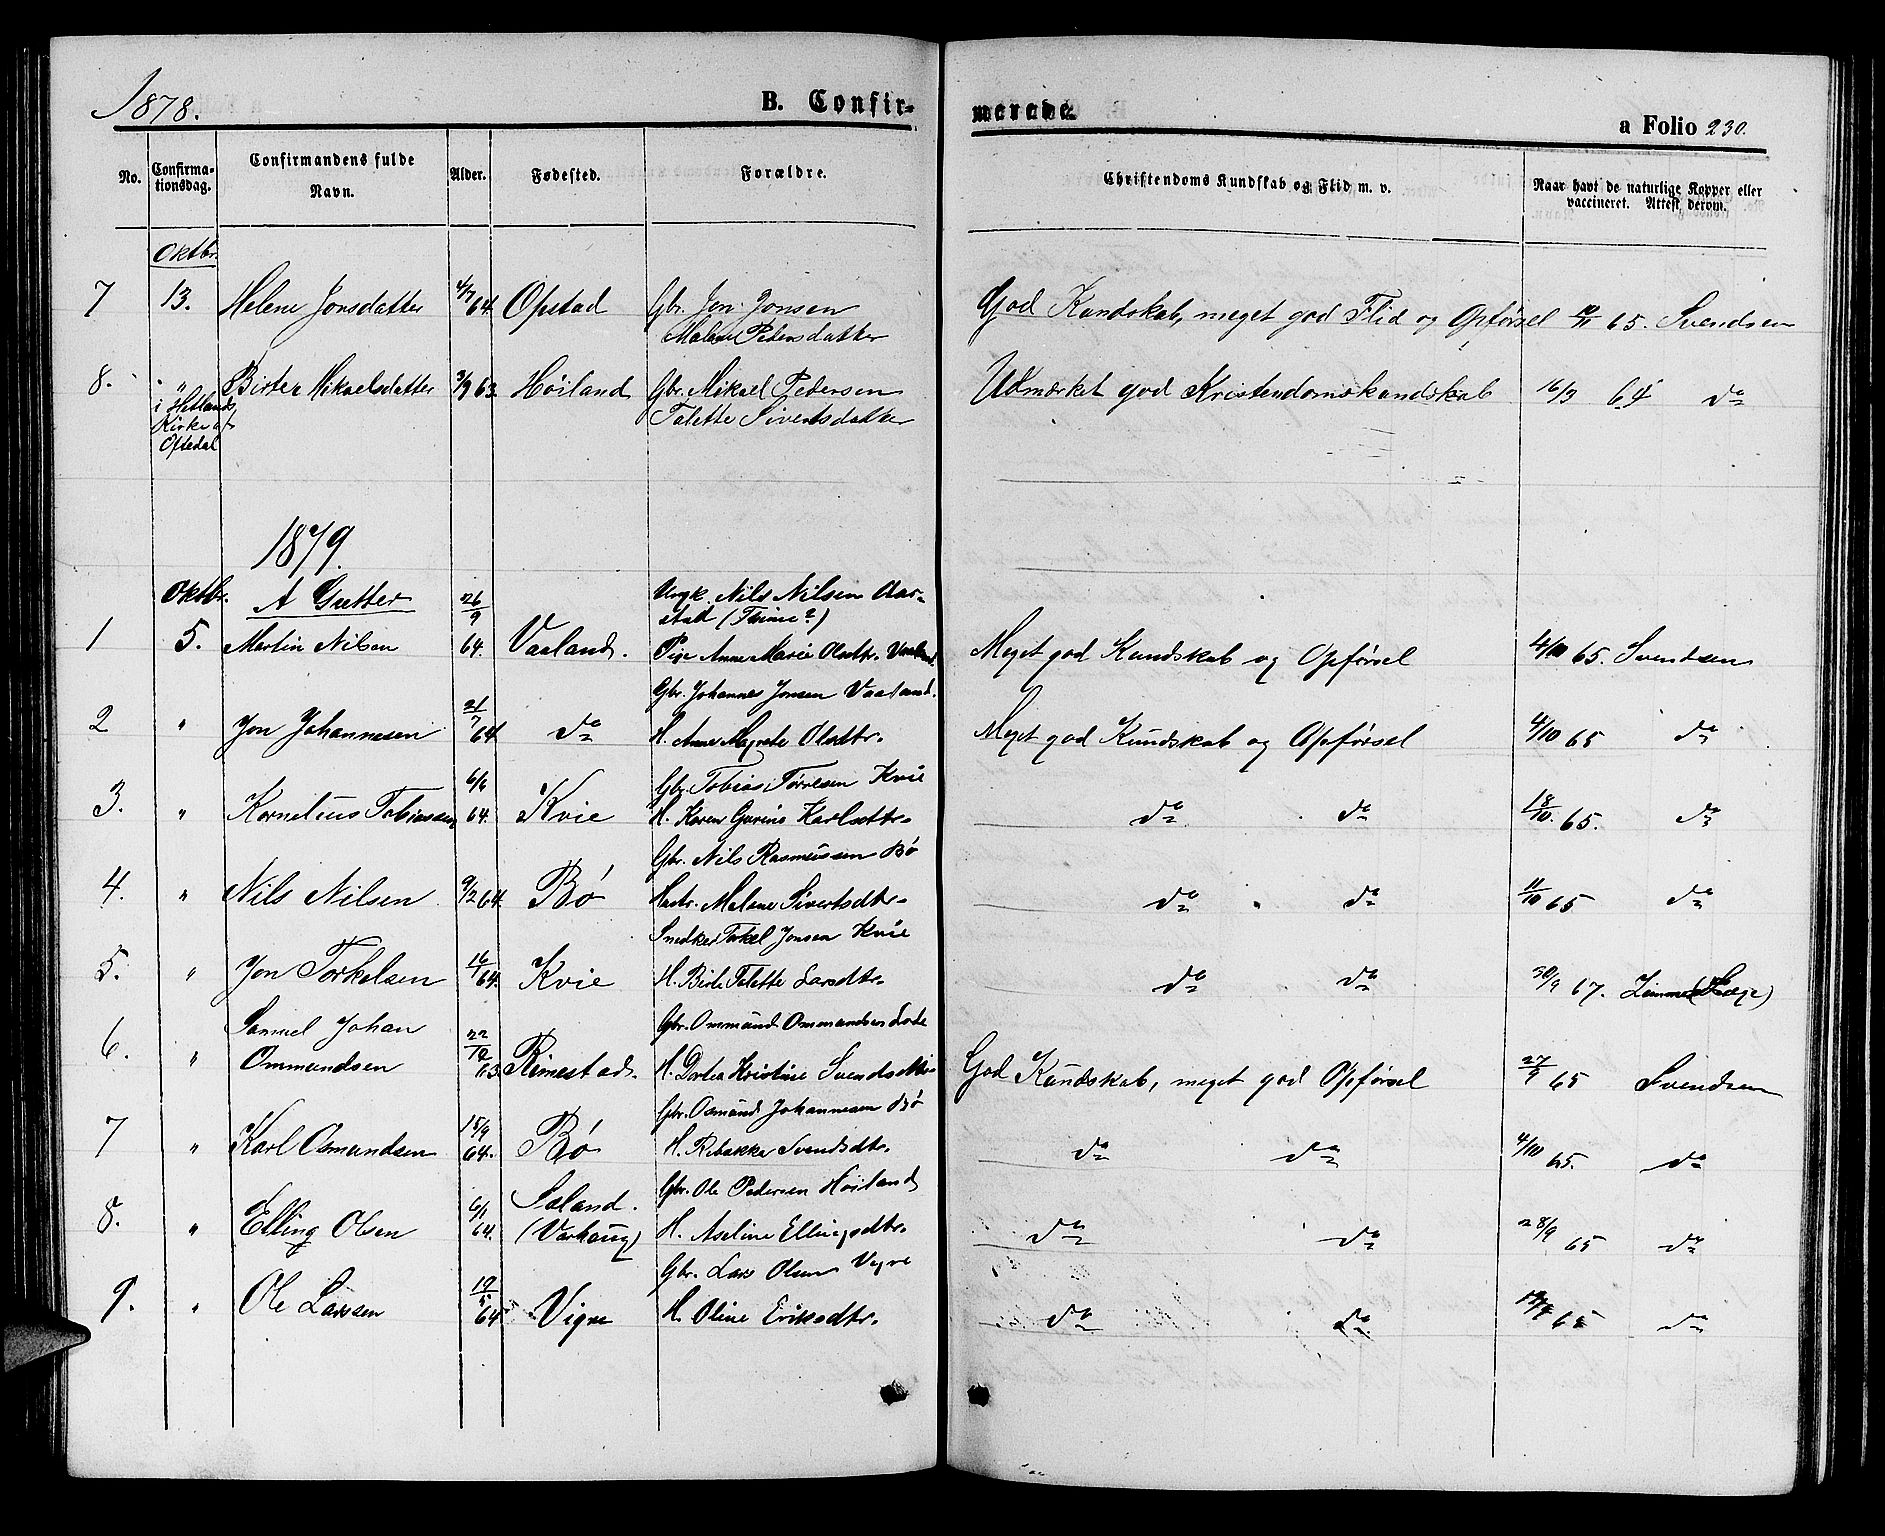 1878.
B. Confir-
merede.
a Folio 230.
No.
Confirma-
tionsdag.
Confirmandens fulde
Navn.
Alder.
Fødested.
Forældre.
Christendoms Kundskab og Flid m. v.
Naar havt de naturlige Kopper eller
vaccineret. Attest derom.
Oktbr.
7 13. Helene Jonsdatter 4/7 64. Opstad Gbr. Jon Jonsen God Kundskab, meget god Flid og Opførsel 65. Svendsen
Malene Pedersdatter
8. " Birtea Mikaelsdatter 3/9 63. Høiland Gbr. Mikael Pedersen Udmærket god Kristendomskundskab 16/9 64 do
i Hetlands Talette Sivertsdatter
Kirke af
Oftedal
1879.
Oktbr. A Gutter 26/9 Ungk. Nils Nilsen Aar-
stad (Thime?)
1 5. Martin Nilsen 64. Vaaland. Pige Anne Marie Olsdtr. Vaaland Meget god Kundskab og Opførsel 4/10 65. Svendsen
Gbr. Johannes Jonsen Vaaland.
2 " Jon Johannesen 21/7 64 do H. Anne Magrete Olsdtr. Meget god Kundskab og Opførsel 4/10 65 do
Gbr. Tobias Tørresen Kvie
3. " Kornelius Tobiassen 6/6 64. Kvie H. Karen Gurine Karlsdtr. do do 18/10. 65. do
Gbr. Nils Rasmussen Bø
4. " Nils Nilsen 9/2 64. Bø Hustr. Malene Sivertsdtr. do " do 11/10 65 do
Snedker Torkel Jonsen Kvie
5. " Jon Torkelsen 16/1 64. Kvie H. Birte Talette Larsdtr. do do 30/9 67. (Læge)
Samuel Johan Gbr. Ommund Ommundsen
6. " Ommundsen 22/12 63 Rimestad. H. Dortea Kristine Svendsdtr. God Kundskab, meget god Opførsel 27/9 65 Svendsen
Gbr. Osmund Johannesen Bø
7 " Karl Osmundsen 15/9 64. Bø H. Rebekka Svendsdtr. do do 4/10 65. do
Saland. Gbr. Ole Pedersen Høiland
8. " Elling Olsen 6/1 64. (Varhaug) H. Aseline Ellingsdtr. do do 28/9 65 do
Gbr. Lars Olsen Vigre
9. " Ole Larsen 64 Vigre H. Oline Eriksdtr. do do 65 do